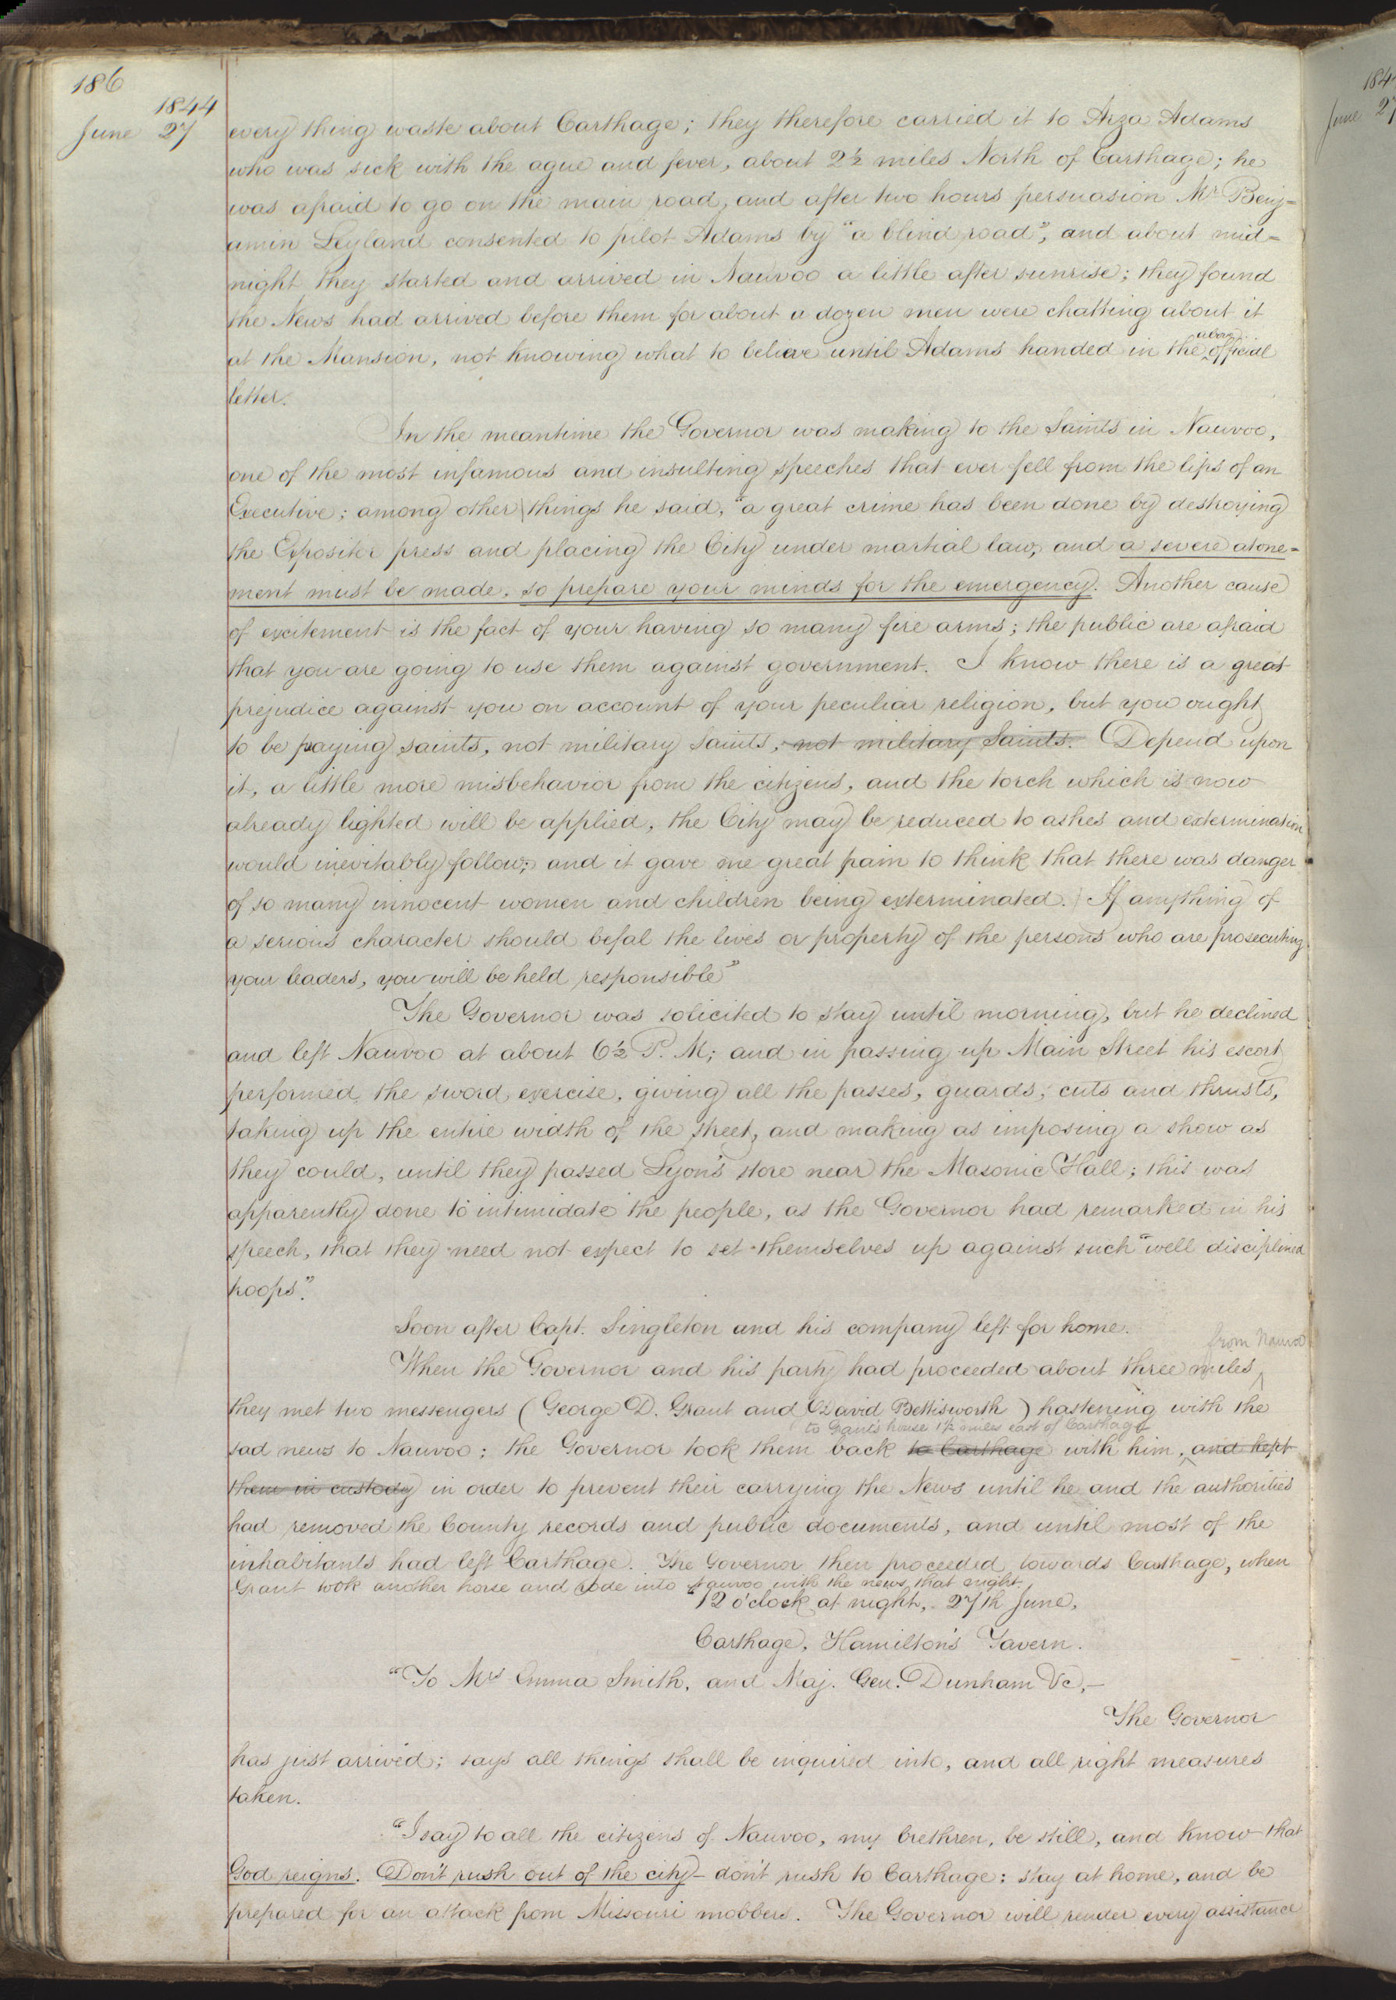 186
1844
June 27
every thing waste about Carthage; they therefore carried it to Arza Adams
who was sick with the ague and fever, about 2½ miles North of Carthage; he
was afraid to go on the main road, and after two hours persuasion Mr. Benj=
amin Leyland consented to pilot Adams by "a blind road", and about mid=
night they started and arrived in Nauvoo a little after sunrise; they found
the News had arrived before them for about a dozen men were chatting about it
at the Mansion, not knowing what to believe until Adams handed in the above official
letter.
In the meantime the Governor was making to the Saints in Nauvoo,
one of the most infamous and insulting speeches that ever fell from the lips of an
Executive; among other things he said, "a great crime has been done by destroying
the Expositor press and placing the City under martial law, and a severe atone=
ment must be made, so prepare your minds for the emergency. Another cause
of excitement is the fact of your having so many fire arms; the public are afraid
that you are going to use them against government. I know there is a great
prejudice against you on account of your peculiar religion, but you ought
to be praying saints, not military saints, not military Saints. Depend upon
it, a little more misbehavior from the citizens, and the torch which is now
already lighted will be applied, the City may be reduced to ashes and extermination
would inevitably follow; and it gave me great pain to think that there was danger
of so many innocent women and children being exterminated. If anything of
a serious character should befal the lives or property of the persons who are prosecuting
your leaders, you will be held responsible"
The Governor was solicited to stay until morning, but he declined
and left Nauvoo at about 6½ P. M; and in passing up Main Street his escort
performed the sword exercise, giving all the passes, guards, cuts and thrusts,
taking up the entire width of the street, and making as imposing a show as
they could, until they passed Lyon's store near the Masonic Hall; this was
apparently done to intimidate the people, as the Governor had remarked in his
speech, that they need not expect to set themselves up against such "well disciplined
troops."
Soon after Capt. Singleton and his company left for home.
from Nauvoo
When the Governor and his party had proceeded about three miles
they met two messengers (George D. Grant and David Bettisworth) hastening with the
to Grant's house 1½ miles east of Carthage
sad news to Nauvoo; the Governor took them back to Carthage with him, and kept
them in custody in order to prevent their carrying the News until he and the authorities
had removed the County records and public documents, and until most of the
inhabitants had left Carthage. The Governor then proceeded towards Carthage, when
Grant took another horse and rode into Nauvoo with the news that night.
"12 o'clock at night, 27th June,
Carthage, Hamilton's Tavern.
"To Mrs Emma Smith, and Maj. Gen. Dunham &c,—
The Governor
has just arrived; says all things shall be inquired into, and all right measures
taken.
"I say to all the citizens of Nauvoo, my brethren, be still, and know that
God reigns. Don't rush out of the city— don't rush to Carthage; stay at home, and be
prepared for an attack from Missouri mobbers. The Governor will render every assistance